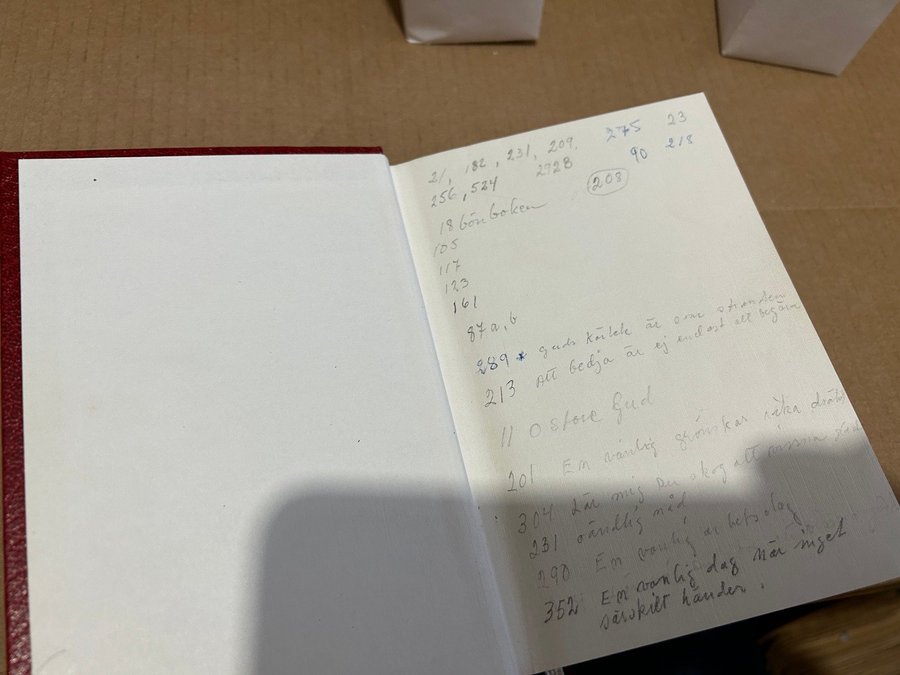 21, 182, 231, 209, 275 23
256, 524 2928 90 218
208
18 bönboken
105
117
123
161
87 a, b
289 * guds kärlek är som stranden
213 Att bedja är ej endast att begära
11 O store Gud
201 En vänlig grönskas rika dräkt
304 Lär mig du skog att vissna glad
231 oändlig nåd
290 En vanlig arbetsdag
352 En vanlig dag när inget
särskilt händer.